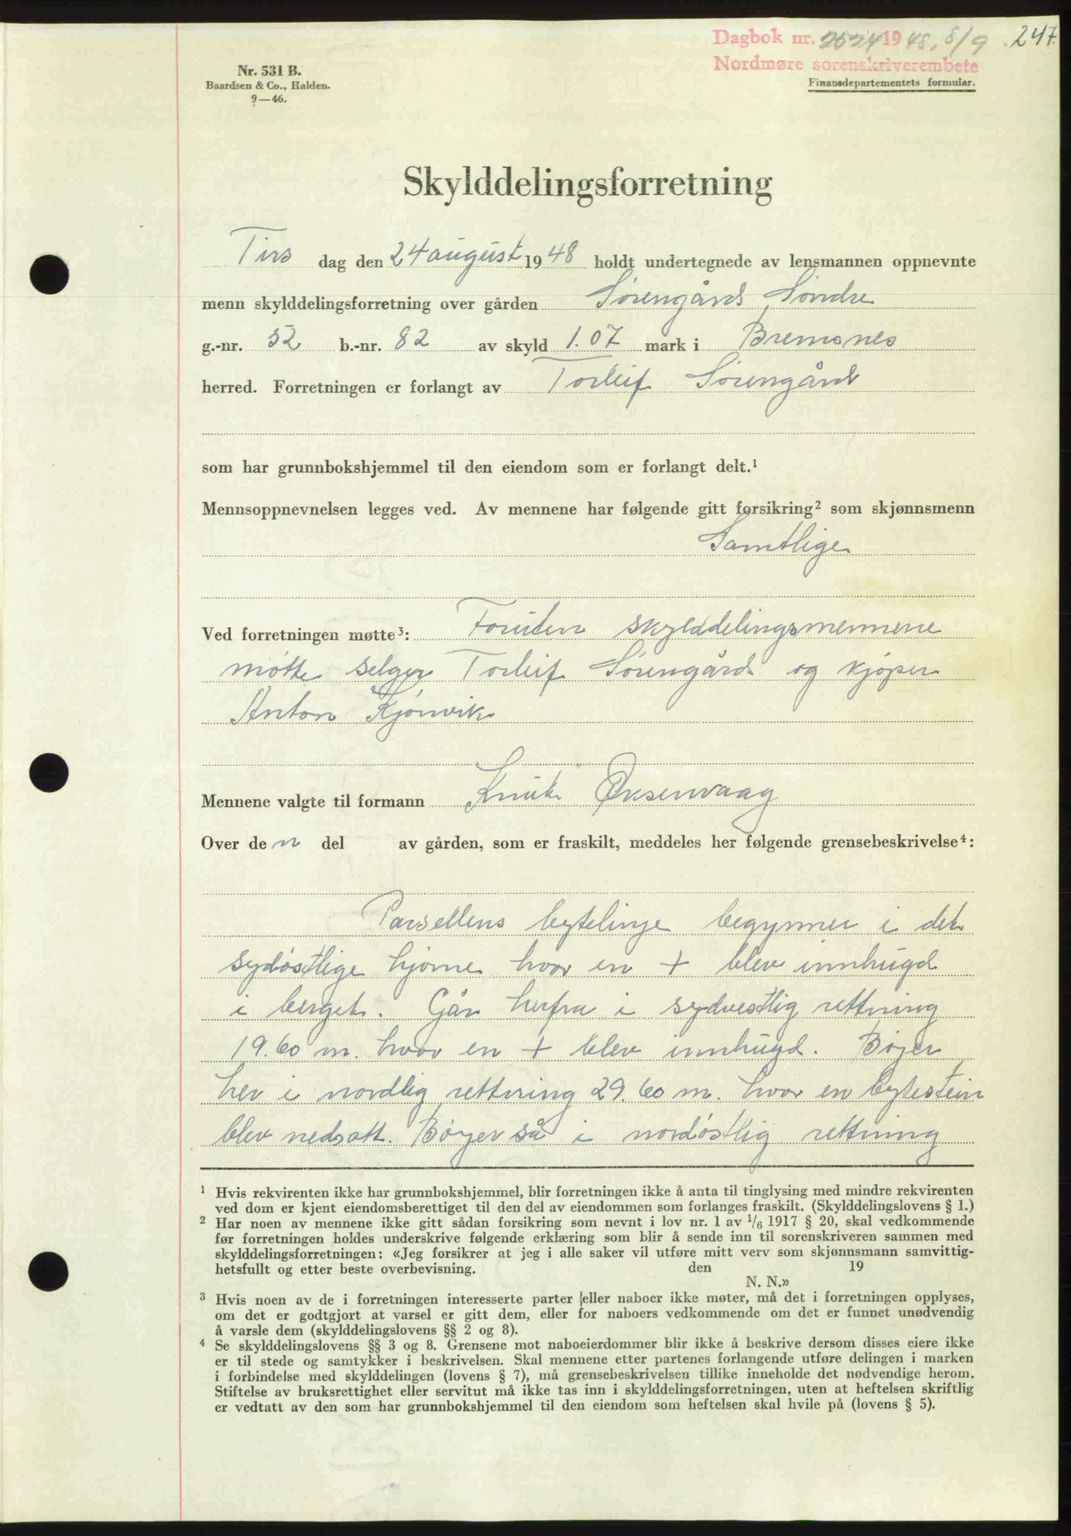 Dagbok nr. 2524 1948, 8/9 . 247.
Nordmøre sorenskriverembete
Finansdepartementets formular.
Nr. 531 B.
Baardsen & Co., Halden.
9—46.
Skylddelingsforretning
Tirs dag den 24 august 1948 holdt undertegnede av lensmannen oppnevnte
menn skylddelingsforretning over gården Sørengård Søndre
g.-nr. 52 b.-nr. 82 av skyld 1.07 mark i Bremsnes
herred. Forretningen er forlangt av Torleif Sørengård
som har grunnbokshjemmel til den eiendom som er forlangt delt.¹
Mennsoppnevnelsen legges ved. Av mennene har følgende gitt forsikring² som skjønnsmenn
Samtlige
Ved forretningen møtte³: Foruten skylddelingsmennene
møtte selger Torleif Sørengård og kjøper
Anton Kjønvik
Mennene valgte til formann Knut Øksenvaag
Over den del av gården, som er fraskilt, meddeles her følgende grensebeskrivelse⁴:
Parsellens bytelinje begynner i det
sydøstlige hjørne hvor en + blev innhugd
i berget. Går herfra i sydvestlig rettning
19.60 m. hvor en + blev innhugd. Bøjer
her i nordlig rettning 29.60 m. hvor en bytestein
blev nedsatt. Bøyer så i nordøstlig rettning
¹ Hvis rekvirenten ikke har grunnbokshjemmel, blir forretningen ikke å anta til tinglysing med mindre rekvirenten
ved dom er kjent eiendomsberettiget til den del av eiendommen som forlanges fraskilt. (Skylddelingslovens § 1.)
² Har noen av mennene ikke gitt sådan forsikring som nevnt i lov nr. 1 av 1/6 1917 § 20, skal vedkommende
før forretningen holdes underskrive følgende erklæring som blir å sende inn til sorenskriveren sammen med
skylddelingsforretningen: «Jeg forsikrer at jeg i alle saker vil utføre mitt verv som skjønnsmann samvittig-
hetsfullt og etter beste overbevisning. den 19
N. N.»
³ Hvis noen av de i forretningen interesserte parter eller naboer ikke møter, må det i forretningen opplyses,
om det er godtgjort at varsel er gitt dem, eller for naboers vedkommende om det er funnet unødvendig
å varsle dem (skylddelingslovens §§ 2 og 8).
⁴ Se skylddelingslovens §§ 3 og 8. Grensene mot naboeierdommer blir ikke å beskrive dersom disses eiere ikke
er til stede og samtykker i beskrivelsen. Skal mennene etter partenes forlangende utføre delingen i marken
i forbindelse med skylddelingen (lovens § 7), må grensebeskrivelsen tillike inneholde det nødvendige herom.
Stiftelse av bruksrettighet eller servitut må ikke tas inn i skylddelingsforretningen, uten at heftelsen skriftlig
er vedtatt av den som har grunnbokshjemmel til den eiendom som heftelsen skal hvile på (lovens § 5).